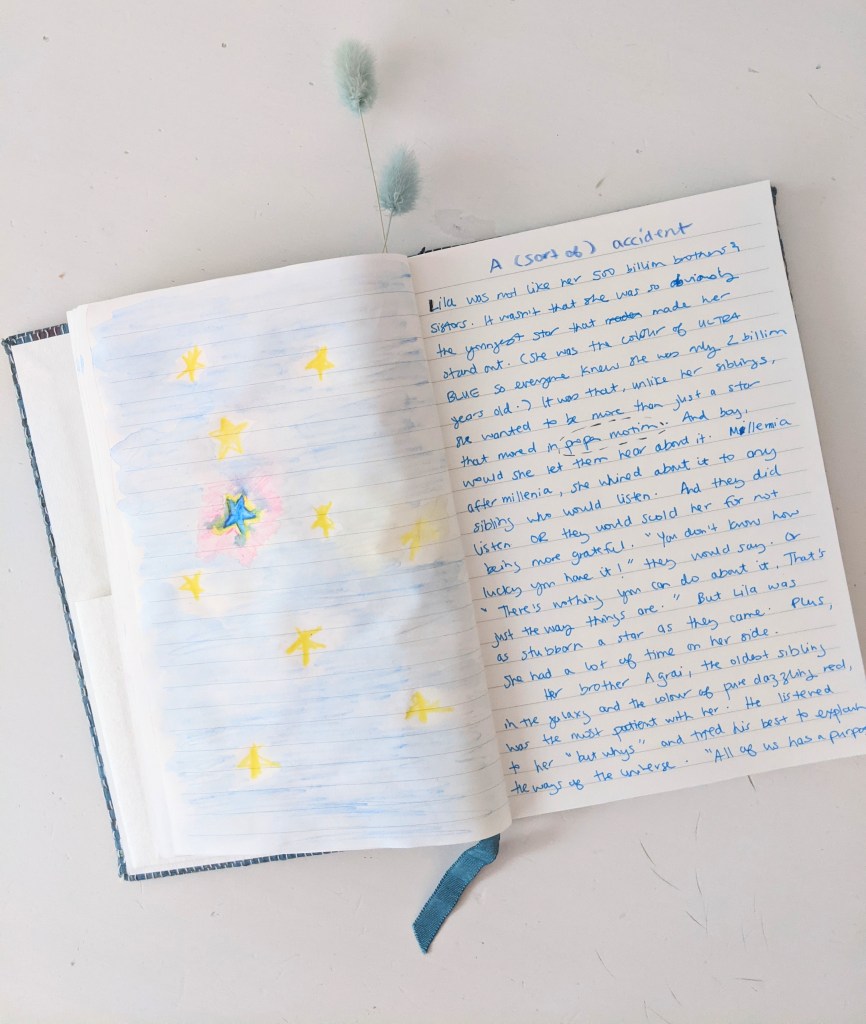 A (sort of) accident
Lila was not like her 500 billion brothers &
sisters. It wasn't that she was so obviously
the youngest star that made her
stand out. (She was the colour of ULTRA
BLUE so everyone knew she was only 2 billion
years old.) It was that, unlike her siblings,
she wanted to be more than just a star
that moved in proper motion. And boy,
would she let them hear about it. Millennia
after millenia, she whined about it to any
sibling who would listen. And they did
listen OR they would scold her for not
being more grateful. "You don't know how
lucky you have it!" they would say. Or
"There's nothing you can do about it. That's
just the way things are." But Lila was
as stubborn a star as they came. Plus,
she had a lot of time on her side.
Her brother Agrai, the oldest sibling
in the galaxy and the colour of pure dazzling red,
was the most patient with her. He listened
to her "but whys" and tried his best to explain
the ways of the universe. "All of us has a purpo